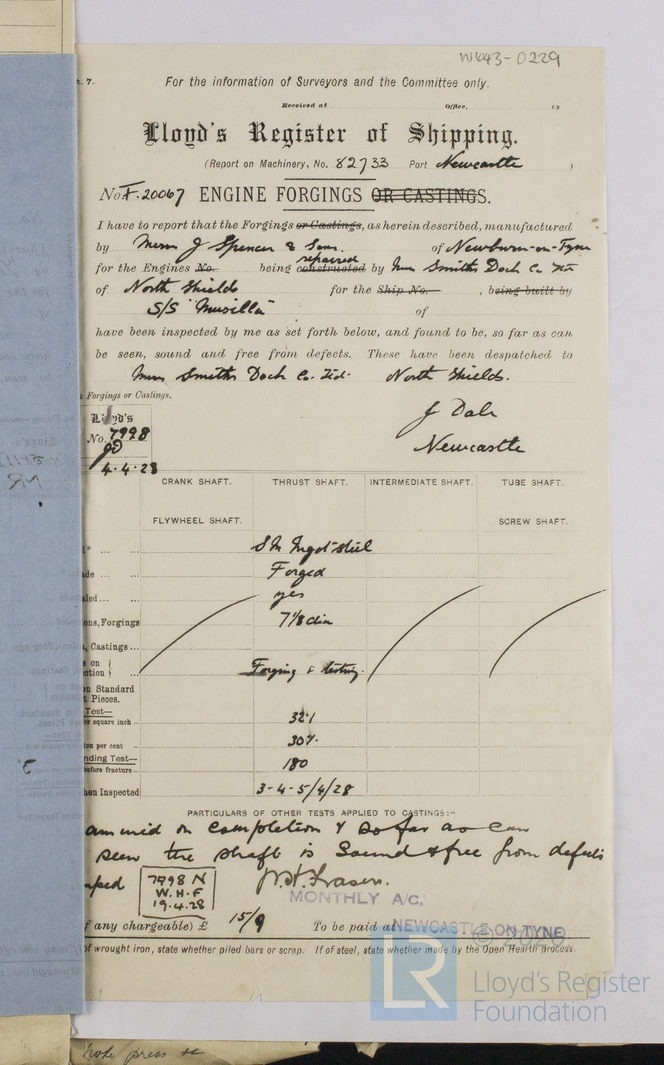 W643-0229
t. 7.
For the information of Surveyors and the Committee only.
Received at Office, 19
Lloyd's Register of Shipping.
(Report on Machinery, No. 82733 Port Newcastle )
No F. 20067 ENGINE FORGINGS OR CASTINGS.
I have to report that the Forgings or Castings, as herein described, manufactured
by Messrs J Spencer & Sons. of Newburn-on-Tyne
repaired
for the Engines No. being constructed by Messrs Smiths Dock Co Ltd
of North Shields for the Ship No. , being built by
S/S "Musilla" of
have been inspected by me as set forth below, and found to be, so far as can
be seen, sound and free from defects. These have been despatched to
Messrs Smiths Dock Co. Ltd. North Shields.
Forgings or Castings.
Lloyd's
No. 7998
JD
4.4.28
J Dale
Newcastle
CRANK SHAFT. THRUST SHAFT. INTERMEDIATE SHAFT. TUBE SHAFT.
FLYWHEEL SHAFT. SCREW SHAFT.
S M Ingot steel
ade Forged
aled yes
ons, Forgings 7 1/8 dia
, Castings
s on
ction Forging & testing.
n Standard
t Pieces.
Test—
er square inch 32.1
ion per cent 30%
nding Test—
before fracture 180
hen Inspected 3-4-5/4/28
PARTICULARS OF OTHER TESTS APPLIED TO CASTINGS:—
amined on completion & so far as can
seen the shaft is sound & free from defects
mped 7998 N
W.H.F
19.4.28
W.H. Fraser.
MONTHLY A/C.
f any chargeable) £ 15/9 To be paid at NEWCASTLE ON TYNE
of wrought iron, state whether piled bars or scrap. If of steel, state whether made by the Open Hearth process.
© 2020
LR
Lloyd's Register
Foundation
note press &c